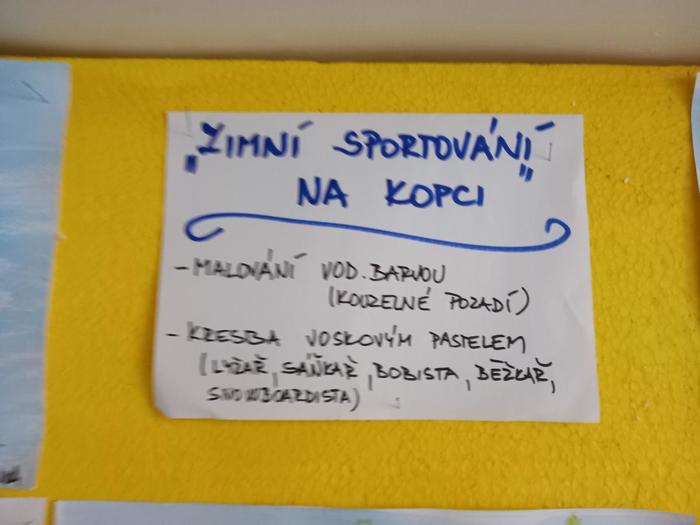 „ZIMNÍ SPORTOVÁNÍ"
NA KOPCI
- MALOVÁNÍ VOD. BARVOU
(KOUZELNÉ POZADÍ)
- KRESBA VOSKOVÝM PASTELEM
(LYŽAŘ, SÁŇKAŘ, BOBISTA, BĚŽKAŘ,
SNOWBOARDISTA)